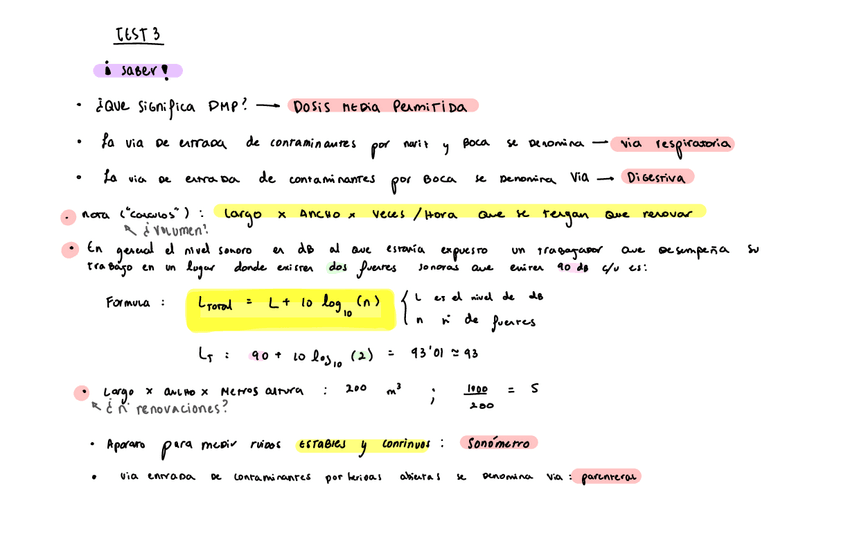 TEST 3
¡ SABER !
• ¿QUE SIGNIFICA DMP? → DOSIS MEDIA PERMITIDA
• La via DE ENTRADA de contaminantes por nariz y BOCA SE DENOMINA → via respiratoria
• La via DE ENTRADA DE contaminantes por BOCA SE DENOMINA VIA → DIGESTIVA
• NOTA ("CALCULOS") : LARGO x ANCHO x VECES / HORA QUE SE TENGAN QUE RENOVAR
¿VOLUMEN?
• En general el nivel sonoro en dB al que estaria expuesto un trabajador QUE DESEMPEÑA SU
trabajo en un lugar donde existen dos fuentes sonoras que emiten 90 dB c/u es:
FORMULA : L TOTAL = L + 10 log10 (n) { L es el nivel de dB
n nº de fuentes
LT : 90 + 10 log10 (2) = 93'01 ≃ 93
• LARGO x ANCHO x METROS ALTURA : 200 m³ ; 1000/200 = 5
¿nº renovaciones?
• APARATO para MEDIR RUIDOS ESTABLES y CONTINUOS : SONÓMETRO
• VIA ENTRADA DE CONTAMINANTES por heridas abiertas se DENOMINA VIA : parenteral